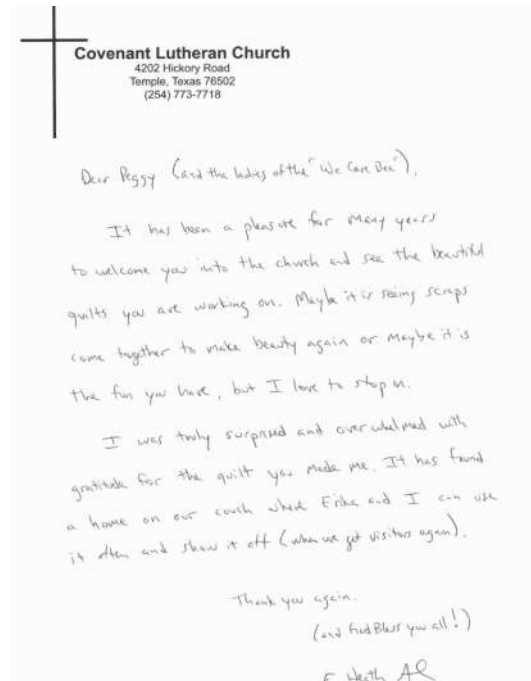 Covenant Lutheran Church
4202 Hickory Road
Temple, Texas 76502
(254) 773-7718
Dear Peggy (and the ladies of the "We Care Bee"),
It has been a pleasure for many years
to welcome you into the church and see the beautiful
quilts you are working on. Maybe it is seeing scraps
come together to make beauty again or maybe it is
the fun you have, but I love to stop in.
I was truly surprised and overwhelmed with
gratitude for the quilt you made me. It has found
a home on our couch where Erika and I can use
it often and show it off (when we get visitors again).
Thank you again.
(and God Bless you all!)
Heath